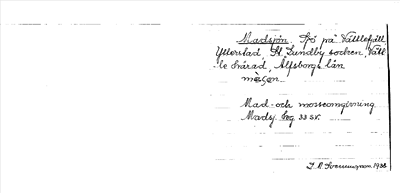 Madsjön. Sjö på Vättlefjäll
Ytterstad St. Lundby socken, Vätt-
le härad, Älfsborgs län
Mad- och mosseomgivning
Madsj. beg 33 sv.
1938